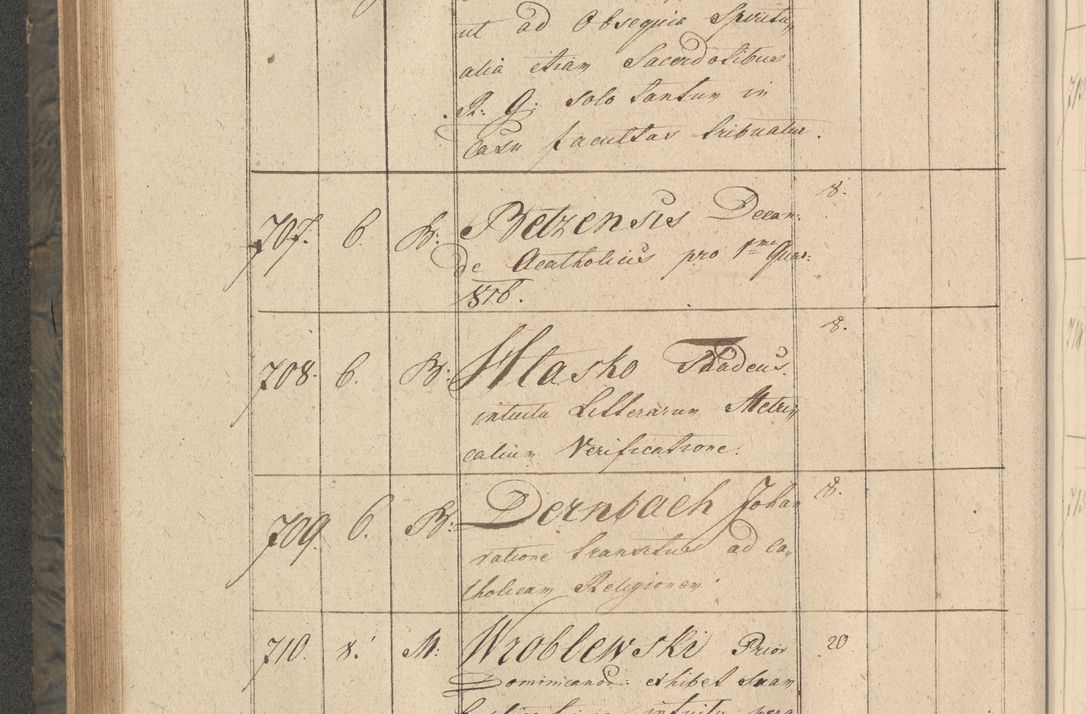 ut ad Obsequia Spiritu
alia etiam Sacerdotibus
R: G: solo tantum in
Casu facultas tribuatur.
707. 6. B: Betzensis Decan: 8.
de Acatholicis pro 1me Quar:
816.
708. 6. B: Hlasko Thadeus. 8.
intuita Litterarum Metri
calium Verificatione:
709. 6. B: Dernbach Johan 8.
ratione transitus ad Ca
tholicam Religionem
710. 8. M: Wroblewski Prior 20
Dominicanor: exhibet suam
intuitu